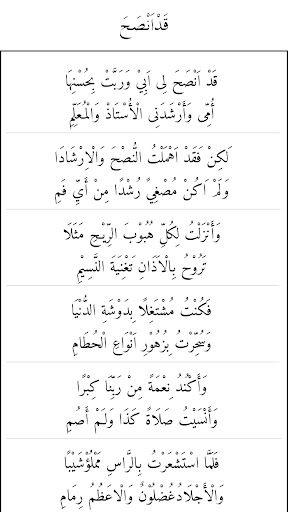 قَدْاَنْصَحَ
قَدْ اَنْصَحَ لِى اَبِيْ وَرَبَّتْ بِحُسْنِهَا
أُمِّى وَأَرْشَدَنِى الْأُسْتَاذْ وَالْمُعَلِّمِ
لَكِنْ فَقَدْ اَهْمَلْتُ النُّصْحَ وَالْاِرْشَادَا
وَلَمْ اَكُنْ مُصْغِيً رُشْدًا مِنْ أَيِّ فَمِ
وَأَنْزَلْتُ لِكُلِّ هُبُوْبَ الرِّيْحِ مَثَلَا
تَرُوْحُ بِالْاَذَانِ تَغْنِيَةَ النَّسِيْمِ
فَكُنْتُ مُشْتَغِلًا بِدَوْشَةِ الدُّنْيَا
وَسُخِّرْتُ بِزُهُوْرِ اَنْوَاعِ الْحُطَامِ
وَأَكْنُدُ نِعْمَةً مِنْ رَبِّنَا كِبْرًا
وَأَنْسَيْتُ صَلَاةً كَذَا وَلَمْ أَصُمِ
فَلَمَّا اسْتَشْعَرْتُ بِالرَّاسِ مَمْلُوْشَيْبًا
وَالْأَجْلَادُغُضْلُوْنٌ وَالْاَعْظُمُ رِمَامِ